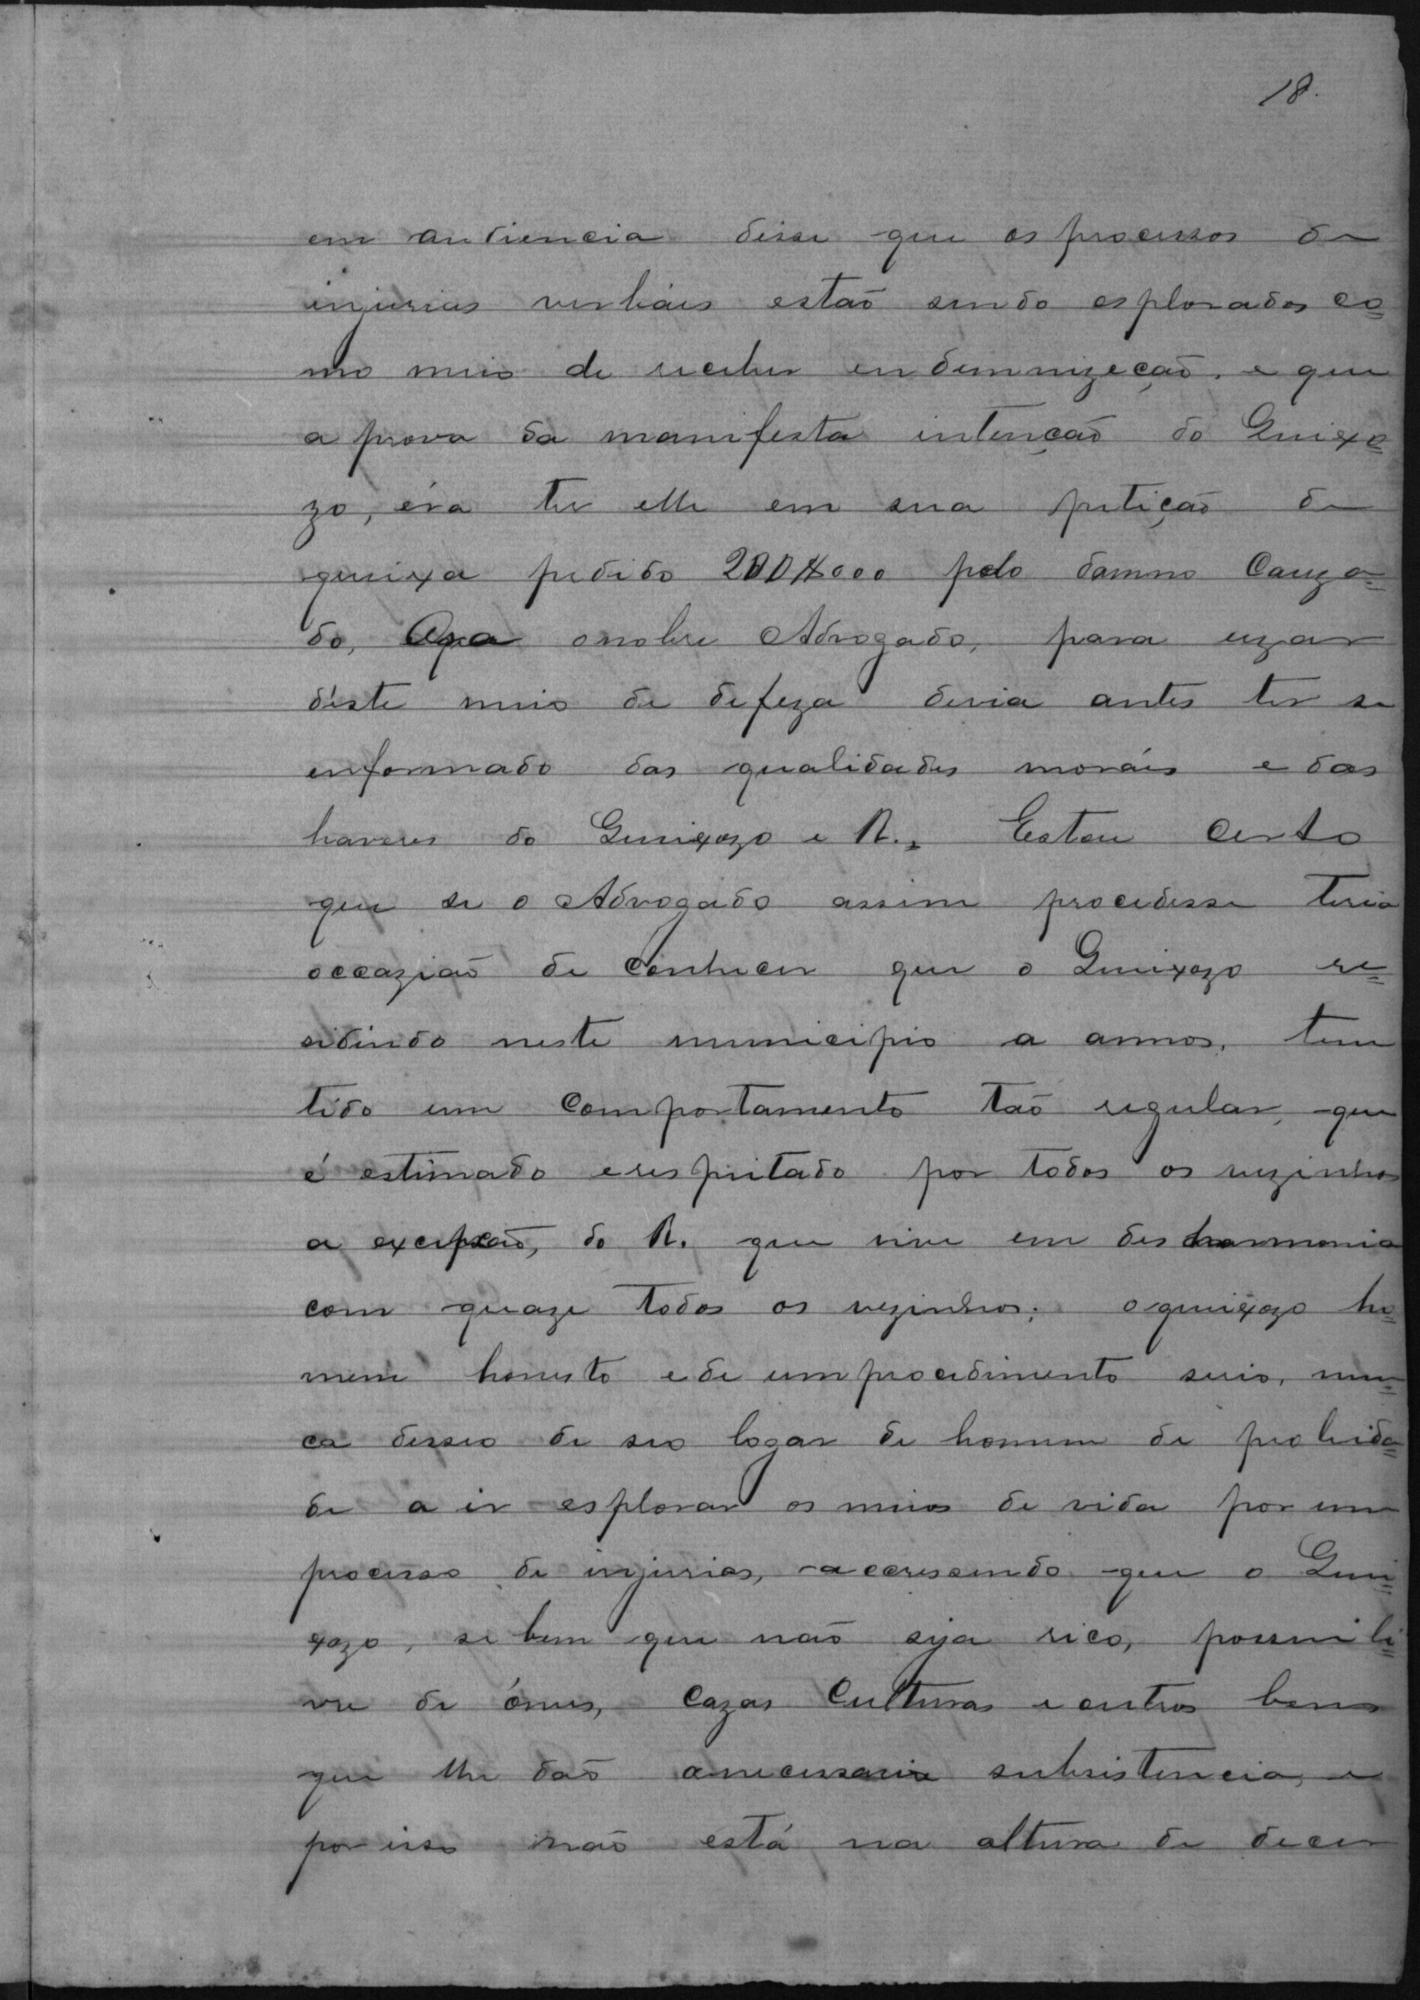 18.
em audiencia disse que os processos de
injurias verbáes estão sendo esplorados co=
mo meio de receber endemnizeção. e que
a prova da manifesta intenção do Queixo
zo, éra ter elle em sua petição de
queixa pedido 200$000 pelo damno cauza=
do, Ora onobre Advogado, para uzar
déste meio de defeza devia antes ter se
enformado das qualidades moráes e dos
haveres do Queixozo e R., Estou certo
que se o Advogado assim procedesse teria
occazião de conhecer que o Queixozo re=
sidindo neste municipio a annos, tem
tido um comportamento tão regular, que
é estimado erespeitado por todos os vezinhos
a excepção, do R. que vive em desharmonia
com quaze todos os vezinhos; oqueixozo ho=
mem honesto ede umprocedimento serio, nun=
ca desseo de seo logar de homem de probida=
de a ir esplorar os meios de vida por um
processo de injurias, accressendo que o Quei=
xozo, sebem que não seja rico, possue li=
vre de ónus, cazas culturas e outros bens
que lhe dão anecessaria subsistencia, e
porisso não está na altura de decer